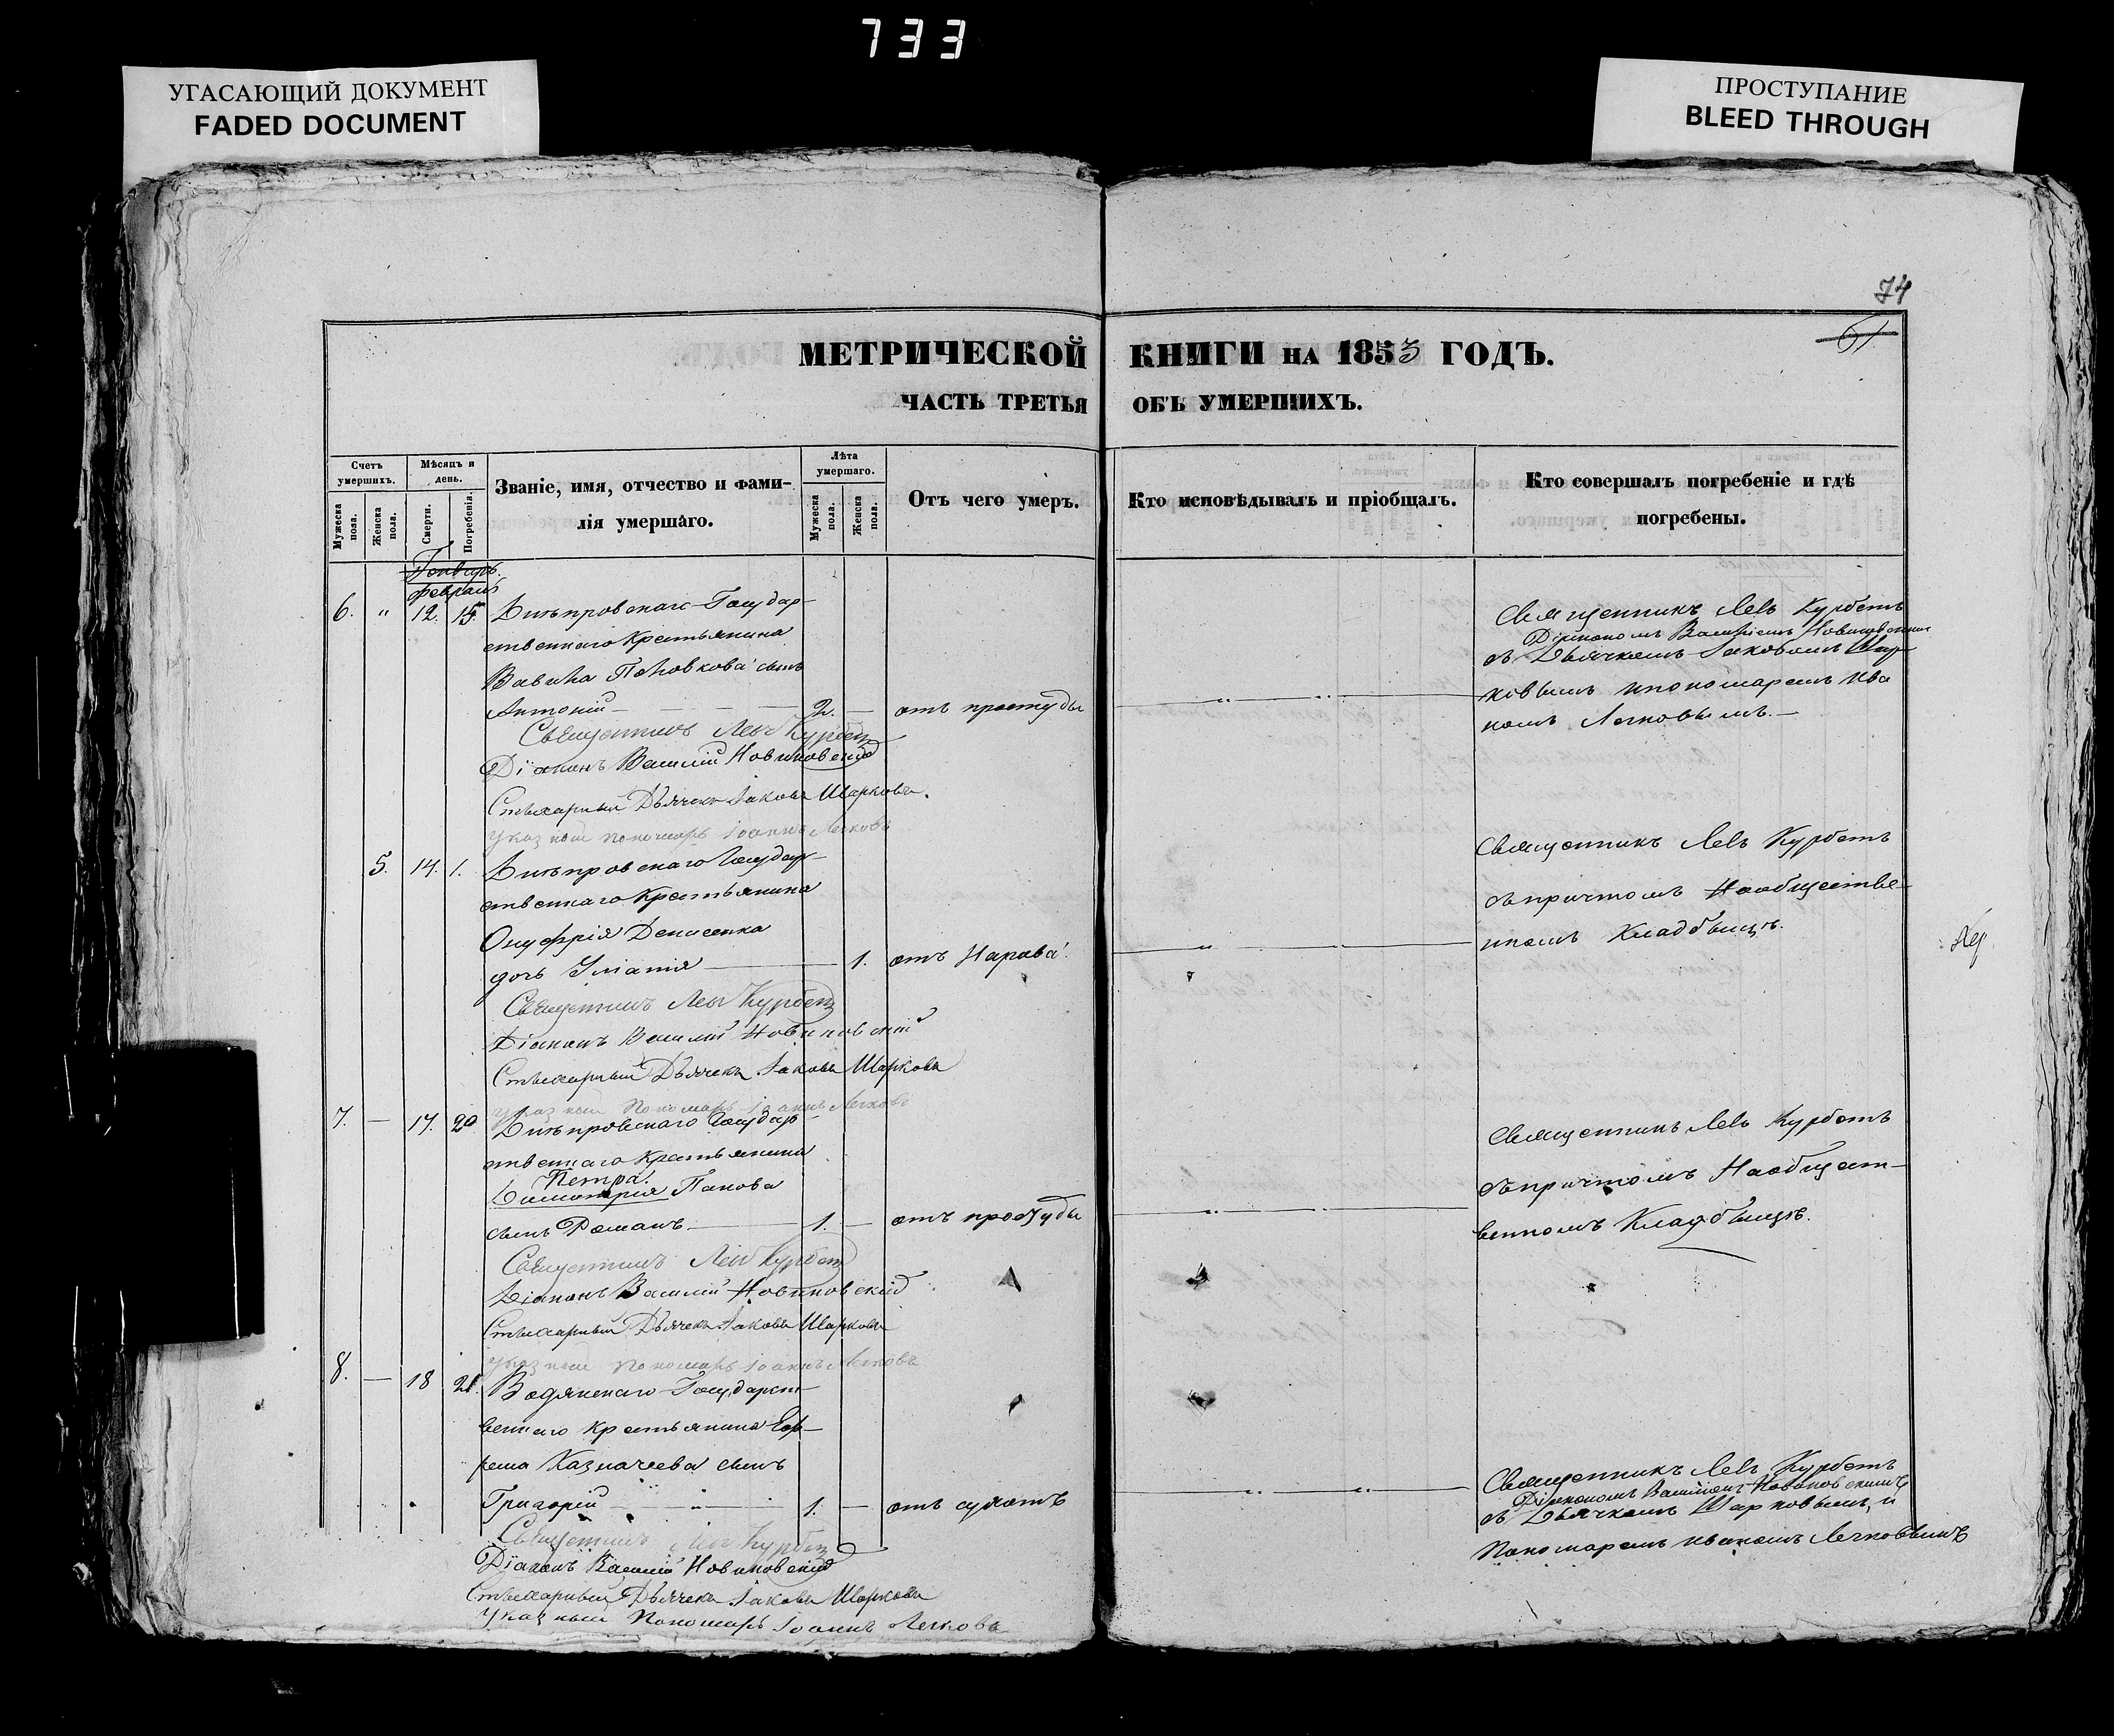 733
УГАСАЮЩИЙ ДОКУМЕНТ
FADED DOCUMENT
ПРОСТУПАНИЕ
BLEED THROUGH
74
МЕТРИЧЕСКОЙ КНИГИ НА 1853 ГОДЪ.
ЧАСТЬ ТРЕТЬЯ ОБЪ УМЕРШИХЪ.
Счетъ умершихъ.
Мужеска пола.
Женска пола.
Мѣсяцъ и день.
Смерти.
Погребенія.
Званіе, имя, отчество и фами-
лія умершаго.
Лѣта умершаго.
Мужеска пола.
Женска пола.
Отъ чего умеръ.
Кто исповѣдывалъ и пріобщалъ.
Кто совершалъ погребеніе и гдѣ
погребены.
Генварь.
Февраль
6. " 12. 15. Днѣпровскаго Государ-
ственнаго Крестьянина
Вавила сынъ
Антоній 2. — отъ простуды
Священникъ Левъ Курбетъ
Діакономъ Василіемъ
съ Дьячкомъ Іаковомъ Шар-
ковымъ и пономаремъ Ива
номъ Легковымъ.—
Священникъ Левъ Курбетъ
Діаконъ Василій Новиновскій
Стихарный Дьячекъ Іаковъ Шарковъ.
Указный Пономарь Іоаннъ Легковъ
5. 14. 1. Днѣпровскаго Государ-
ственнаго Крестьянина
Онуфрія Денисенка
дочь 1. отъ
Священникъ Левъ Курбетъ
съ причтомъ На обществе-
нномъ Кладбищѣ.
Священникъ Левъ Курбетъ
Діаконъ Василій Новиновскій
Стихарный Дьячекъ Іаковъ Шарковъ
Указный Пономарь Іоаннъ Легковъ
7. — 17. 20 Днѣпровскаго Государ-
ственнаго Крестьянина
Петра
Димитрія Панова
сынъ Романъ 1. — отъ простуды
Священникъ Левъ Курбетъ
съ причтомъ На общест-
венномъ Кладбищѣ.
Священникъ Левъ Курбетъ
Діаконъ Василій Новиновскій
Стихарный Дьячекъ Іаковъ Шарковъ
Указный Пономарь Іоаннъ Легковъ
8. — 18 21. Водянскаго Государст-
веннаго Крестьянина Еф-
рема Казначеева сынъ
Григорій 1. — отъ сухотъ
Священникъ Левъ Курбетъ
Діакономъ Василіемъ Новиновскимъ
съ Дьячкомъ Шарковымъ и
Пономаремъ Иваномъ Легковымъ
Священникъ Левъ Курбетъ
Діаконъ Василій Новиновскій
Стихарный Дьячекъ Іаковъ Шарковъ
Указный Пономарь Іоаннъ Легковъ